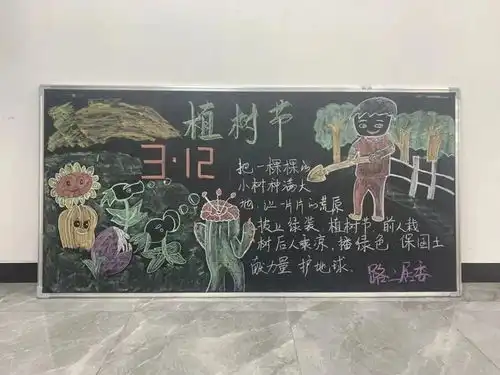 植树节
3·12
把一棵棵的
小树种满大
地,让一片片的荒原
披上绿装,植树节,前人栽
树后人乘凉,播绿色,保国土
献力量 护地球.
路二居委